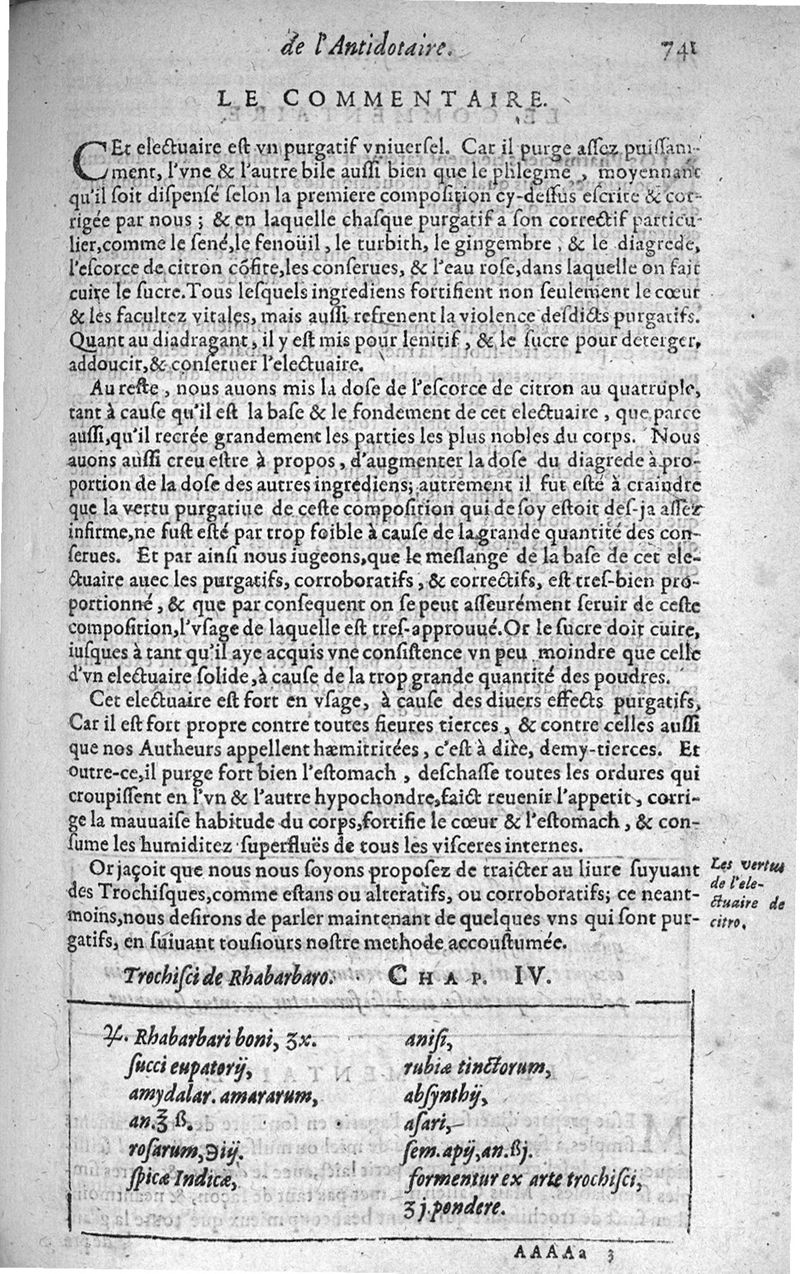 de l'Antidotaire. 741
LE COMMENTAIRE.
CEt electuaire est vn purgatif vniuersel. Car il purge assez puissam-
ment, l'vne & l'autre bile aussi bien que le phlegme, moyennant
qu'il soit dispensé selon la premiere composition cy-dessus escrite & cor-
rigée par nous ; & en laquelle chasque purgatif a son correctif particu-
lier, comme le sené, le fenoüil, le turbith, le gingembre, & le diagrede,
l'escorce de citron cõfite, les conserues, & l'eau rose, dans laquelle on fait
cuire le sucre. Tous lesquels ingrediens fortifient non seulement le cœur
& les facultez vitales, mais aussi refrenent la violence desdicts purgatifs.
Quant au diadragant, il y est mis pour lenitif, & le sucre pour deterger,
addoucir, & conseruer l'electuaire.
Au reste, nous auons mis la dose de l'escorce de citron au quatruple,
tant à cause qu'il est la base & le fondement de cet electuaire, que parce
aussi, qu'il recrée grandement les parties les plus nobles du corps. Nous
auons aussi creu estre à propos, d'augmenter la dose du diagrede à pro-
portion de la dose des autres ingrediens; autrement il fut esté à craindre
que la vertu purgatiue de ceste composition qui de soy estoit des-ja assez
infirme, ne fust esté par trop foible à cause de la grande quantité des con-
serues. Et par ainsi nous iugeons, que le meslange de la base de cet ele-
ctuaire auec les purgatifs, corroboratifs, & correctifs, est tres-bien pro-
portionné, & que par consequent on se peut asseurément seruir de ceste
composition, l'vsage de laquelle est tres-approuué. Or le sucre doit cuire,
iusques à tant qu'il aye acquis vne consistence vn peu moindre que celle
d'vn electuaire solide, à cause de la trop grande quantité des poudres.
Cet electuaire est fort en vsage, à cause des diuers effects purgatifs,
Car il est fort propre contre toutes fieures tierces, & contre celles aussi
que nos Autheurs appellent hæmitritées, c'est à dire, demy-tierces. Et
outre-ce, il purge fort bien l'estomach, deschasse toutes les ordures qui
croupissent en l'vn & l'autre hypochondre, faict reuenir l'appetit, corri-
ge la mauuaise habitude du corps, fortifie le cœur & l'estomach, & con-
sume les humiditez superfluës de tous les visceres internes.
Or jaçoit que nous nous soyons proposez de traicter au liure suyuant
des Trochisques, comme estans ou alteratifs, ou corroboratifs; ce neant-
moins, nous desirons de parler maintenant de quelques vns qui sont pur-
gatifs, en suiuant tousiours nostre methode accoustumée.
Les vertus
de l'ele-
ctuaire de
citro.
Trochisci de Rhabarbaro. CHAP. IV.
♃. Rhabarbari boni, ʒx.
succi eupatorij,
amydalar. amararum,
an. ℥ ß.
rosarum, ℈iij.
spicæ Indicæ,
anisi,
rubiæ tinctorum,
absynthij,
asari,
sem. apij, an. ßj.
formentur ex arte trochisci,
ʒ j. pondere.
AAAAa 3